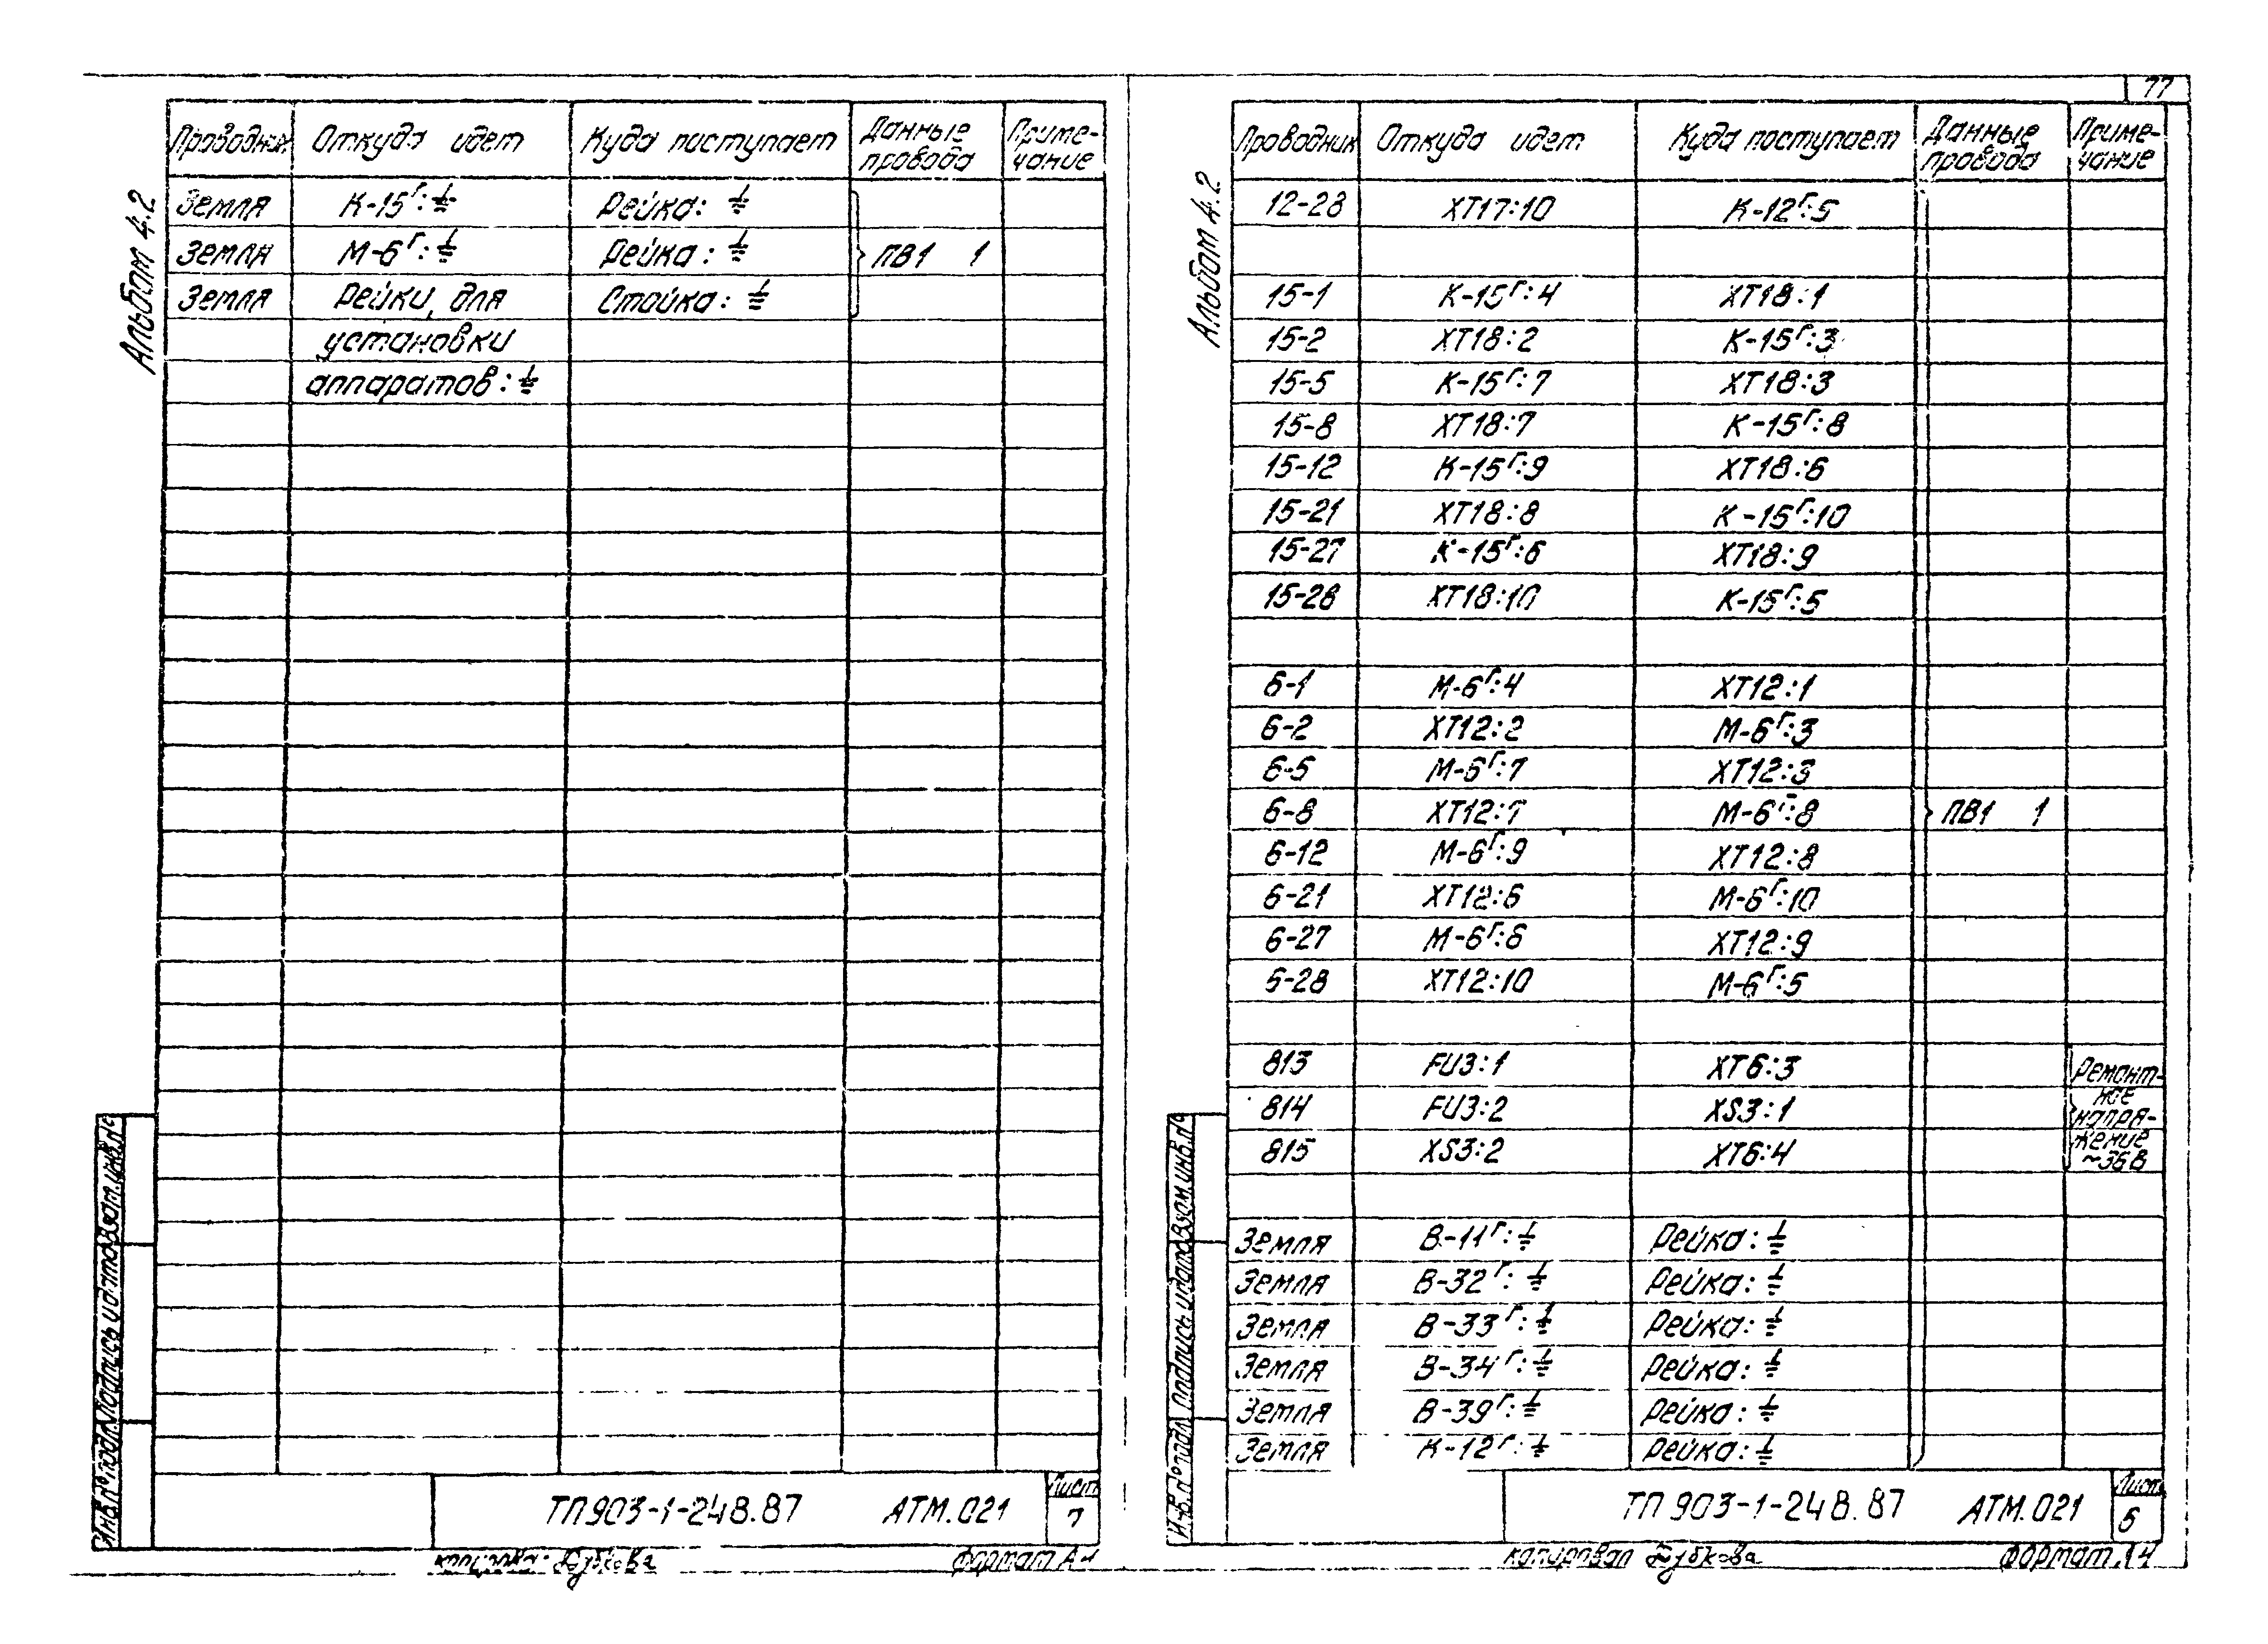 77
Альбом 4.2
Проводник Откуда идет Куда поступает Данные провода Примечание
Земля К-15Г:⏚ Рейка: ⏚
Земля М-6Г:⏚ Рейка: ⏚ ПВ1 1
Земля Рейки, для Стойка: ⏚
установки
аппаратов:⏚
Инв.№ подл. Подпись и дата Взам.инв.№
ТП903-1-248.87 АТМ.021 Лист 7
Дубкова Формат А4
Альбом 4.2
Проводник Откуда идет Куда поступает Данные провода Приме-чание
12-28 ХТ17:10 К-12Г:5
15-1 К-15Г:4 ХТ18:1
15-2 ХТ18:2 К-15Г:3
15-5 К-15Г:7 ХТ18:3
15-8 ХТ18:7 К-15Г:8
15-12 К-15Г:9 ХТ18:6
15-21 ХТ18:8 К-15Г:10
15-27 К-15Г:6 ХТ18:9
15-28 ХТ18:10 К-15Г:5
6-1 М-6Г:4 ХТ12:1
6-2 ХТ12:2 М-6Г:3
6-5 М-6Г:7 ХТ12:3
6-8 ХТ12:7 М-6Г:8 ПВ1 1
6-12 М-6Г:9 ХТ12:8
6-21 ХТ12:6 М-6Г:10
6-27 М-6Г:6 ХТ12:9
6-28 ХТ12:10 М-6Г:5
813 FU3:1 ХТ6:3 Ремонт-
814 FU3:2 XS3:1 ное напря-
815 XS3:2 ХТ6:4 жение ~36В
Земля В-11Г:⏚ Рейка:⏚
Земля В-32Г:⏚ Рейка:⏚
Земля В-33Г:⏚ Рейка:⏚
Земля В-34Г:⏚ Рейка:⏚
Земля В-39Г:⏚ Рейка:⏚
Земля К-12Г:⏚ Рейка:⏚
Инв.№ подл. Подпись и дата Взам.инв.№
ТП 903-1-248.87 АТМ.021 Лист 6
копировал Дубкова Формат А4